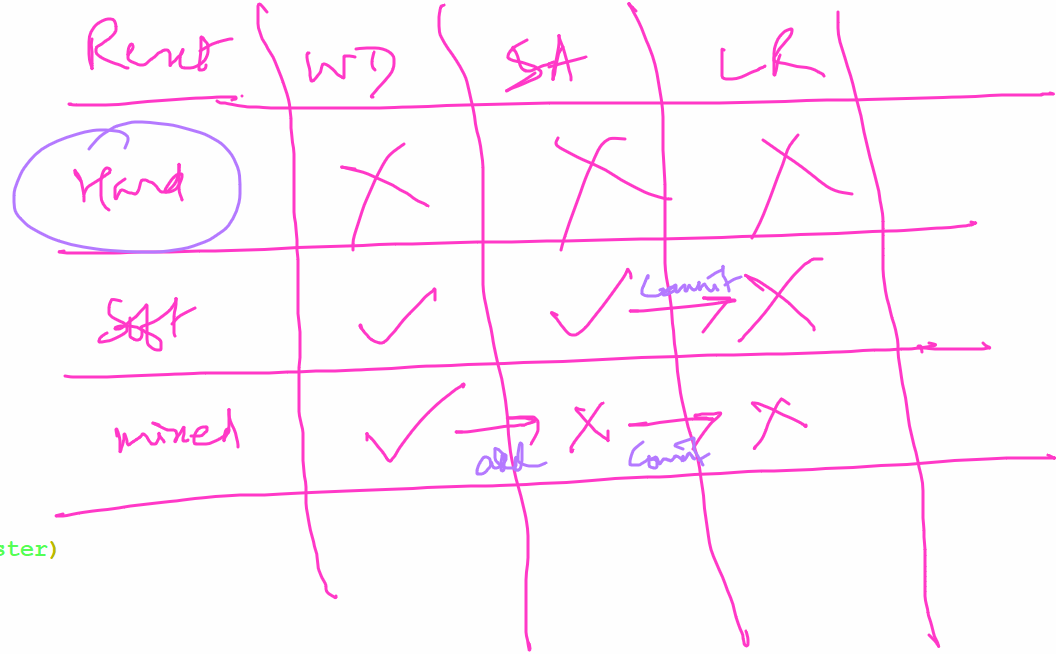 Reset WD SA LR
Hard
Soft Commit
mixed add Commit
ster)